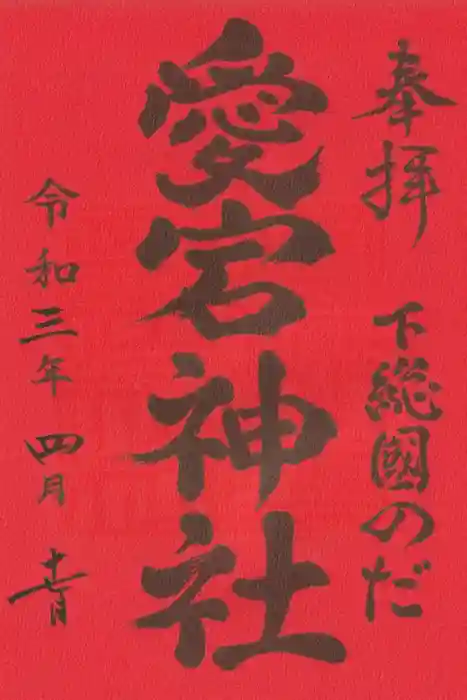 奉拝 下総國のだ
愛宕神社
令和三年 四月 十一日